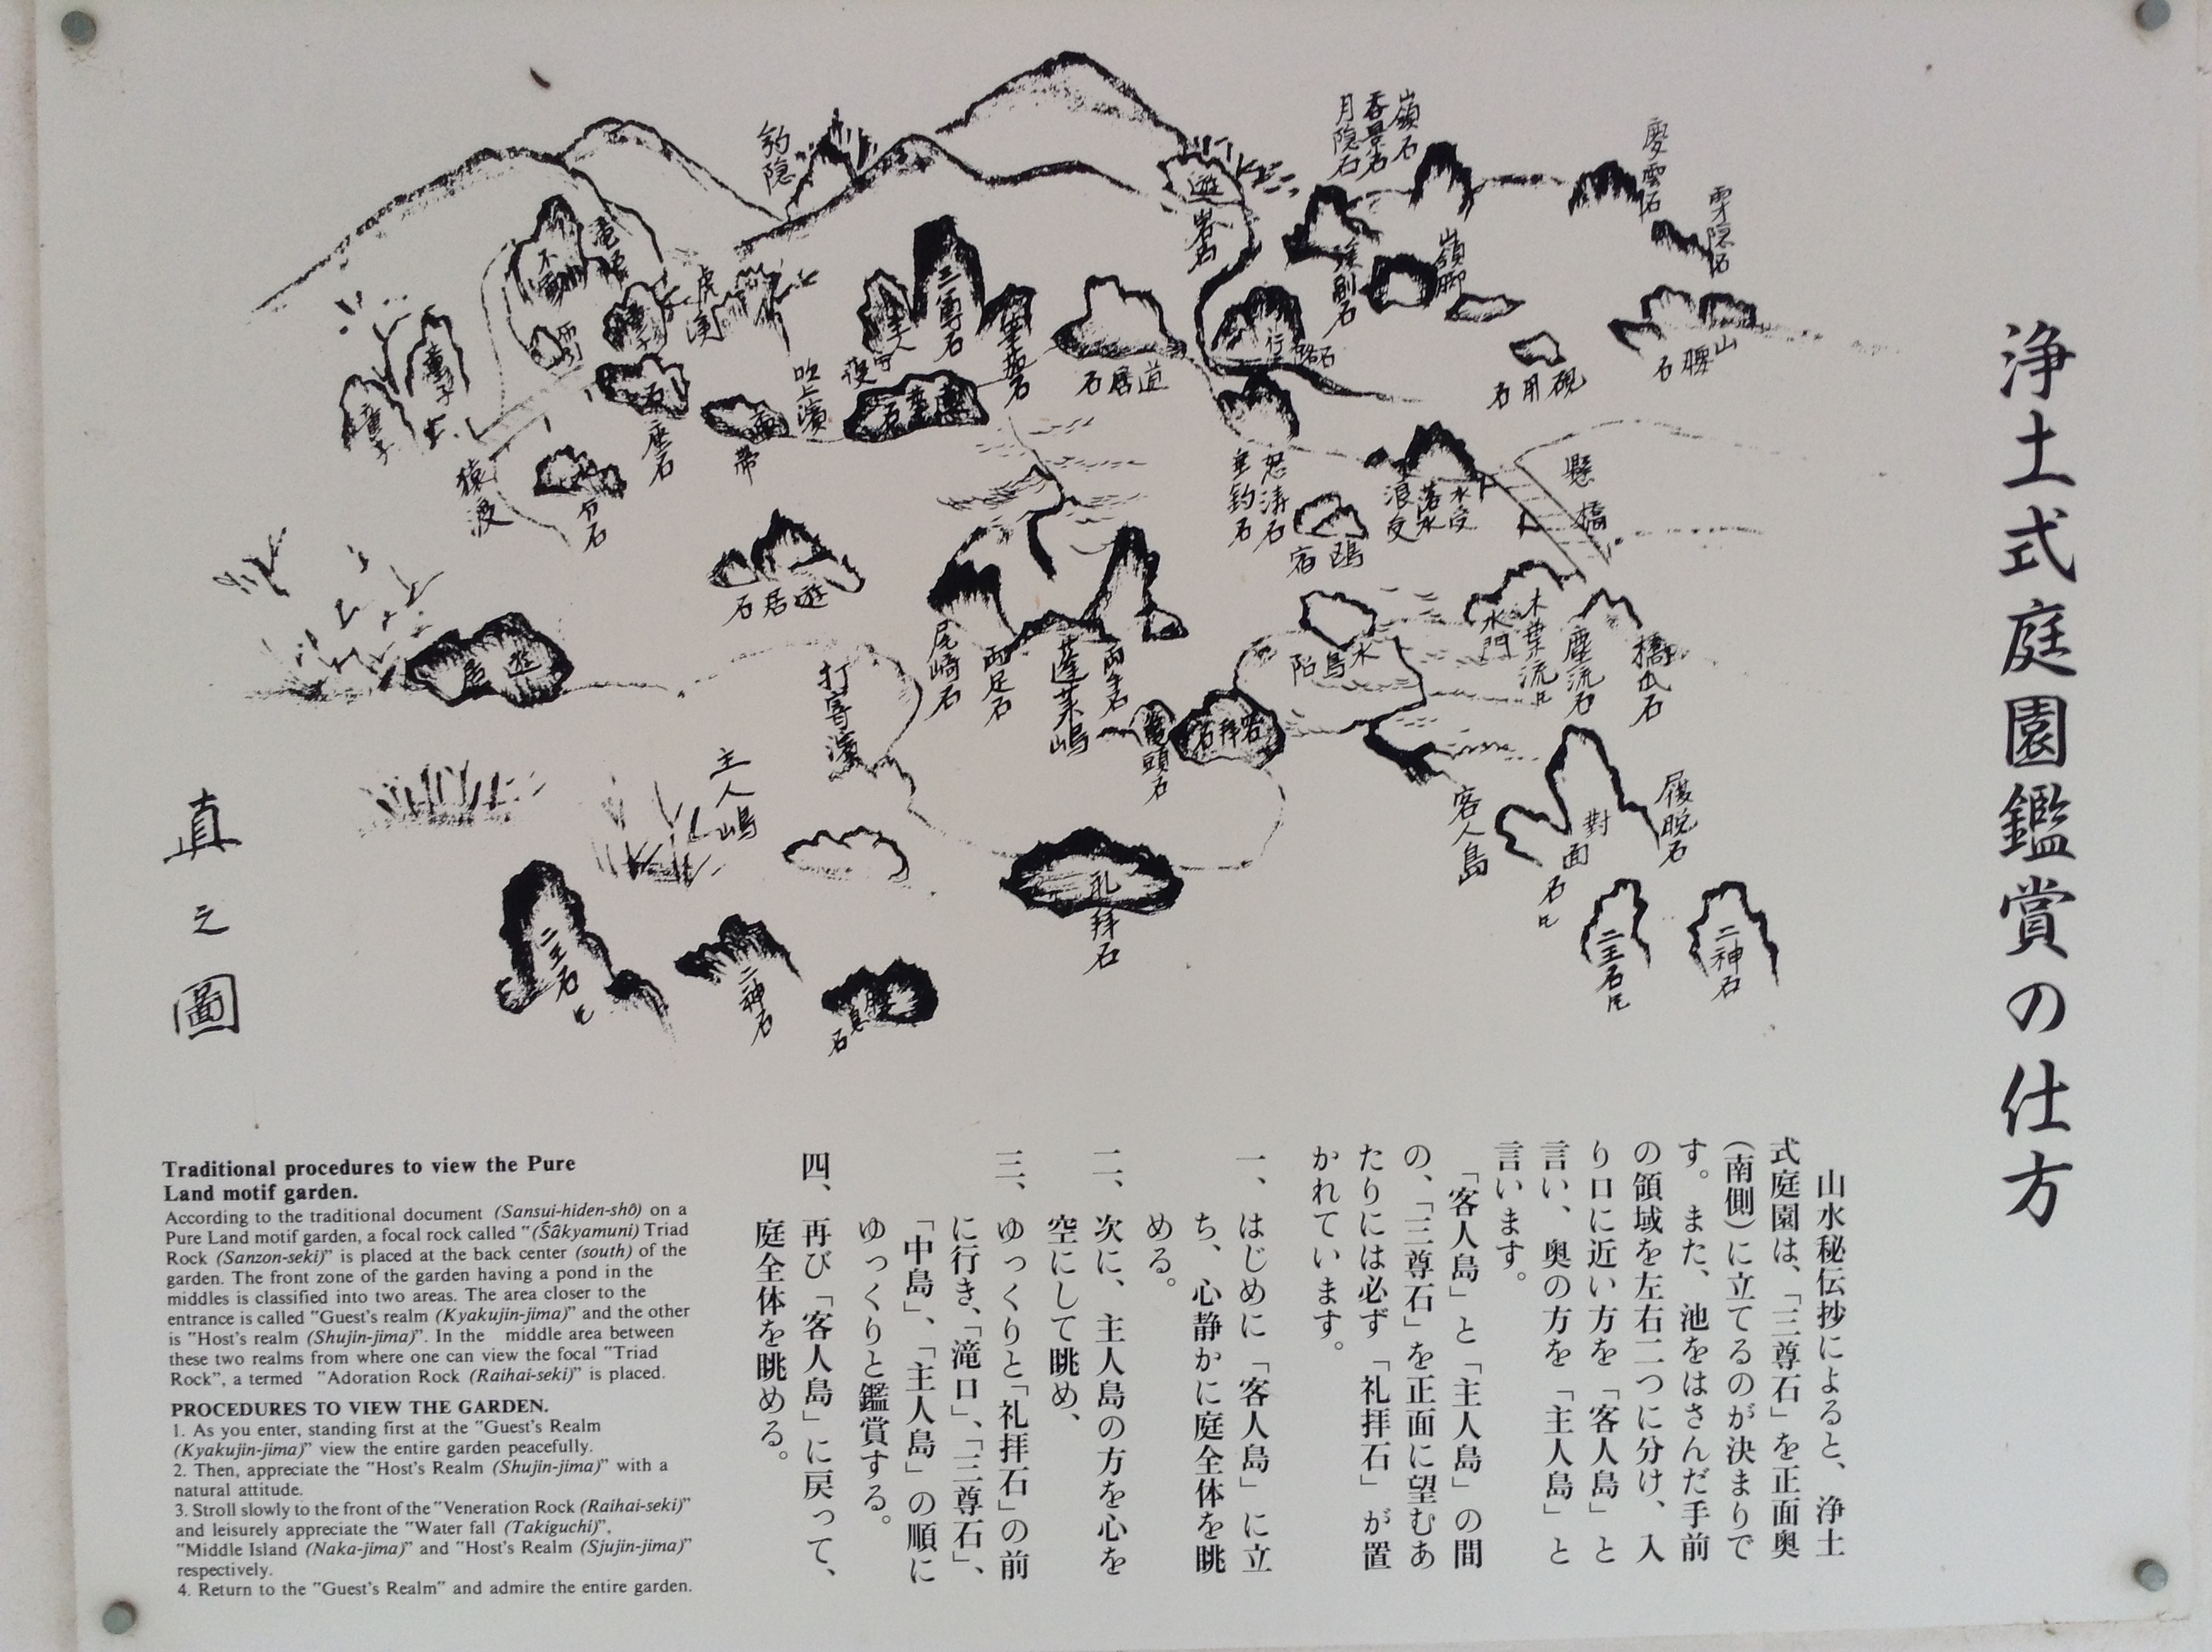 浄土式庭園鑑賞の仕方
嶺石
呑景石
月隠石
慶雲石
釣隠
遊
居石
不動
童子
童子
虎渓
三尊石
吹上濱
道居石
硯用石
山腰石
嶺脚
座石
水分石
猿渡
怒涛石
垂釣石
水受
落水
浪受
懸橋
鴎宿
遊居石
遊居
尾崎石
両足石
蓬莱嶋
両手石
亀頭石
客拝石
水陥島
水門
木葉流
塵流石
打寄濱
主人嶋
客人島
履脱石
對面石
礼拝石
二王石
二神石
二王石
二神石
真之圖
山水秘伝抄によると、浄土
式庭園は、「三尊石」を正面奥
（南側）に立てるのが決まりで
す。また、池をはさんだ手前
の領域を左右二つに分け、入
り口に近い方を「客人島」と
言い、奥の方を「主人島」と
言います。
「客人島」と「主人島」の間
の、「三尊石」を正面に望むあ
たりには必ず「礼拝石」が置
かれています。
一、はじめに「客人島」に立
ち、心静かに庭全体を眺
める。
二、次に、主人島の方を心を
空にして眺め、
三、ゆっくりと「礼拝石」の前
に行き、「滝口」、「三尊石」、
「中島」、「主人島」の順に
ゆっくりと鑑賞する。
四、再び「客人島」に戻って、
庭全体を眺める。
Traditional procedures to view the Pure
Land motif garden.
According to the traditional document (Sansui-hiden-shō) on a
Pure Land motif garden, a focal rock called "(Śâkyamuni) Triad
Rock (Sanzon-seki)" is placed at the back center (south) of the
garden. The front zone of the garden having a pond in the
middles is classified into two areas. The area closer to the
entrance is called "Guest's realm (Kyakujin-jima)" and the other
is "Host's realm (Shujin-jima)". In the middle area between
these two realms from where one can view the focal "Triad
Rock", a termed "Adoration Rock (Raihai-seki)" is placed.
PROCEDURES TO VIEW THE GARDEN.
1. As you enter, standing first at the "Guest's Realm
(Kyakujin-jima)" view the entire garden peacefully.
2. Then, appreciate the "Host's Realm (Shujin-jima)" with a
natural attitude.
3. Stroll slowly to the front of the "Veneration Rock (Raihai-seki)"
and leisurely appreciate the "Water fall (Takiguchi)",
"Middle Island (Naka-jima)" and "Host's Realm (Sjujin-jima)"
respectively.
4. Return to the "Guest's Realm" and admire the entire garden.